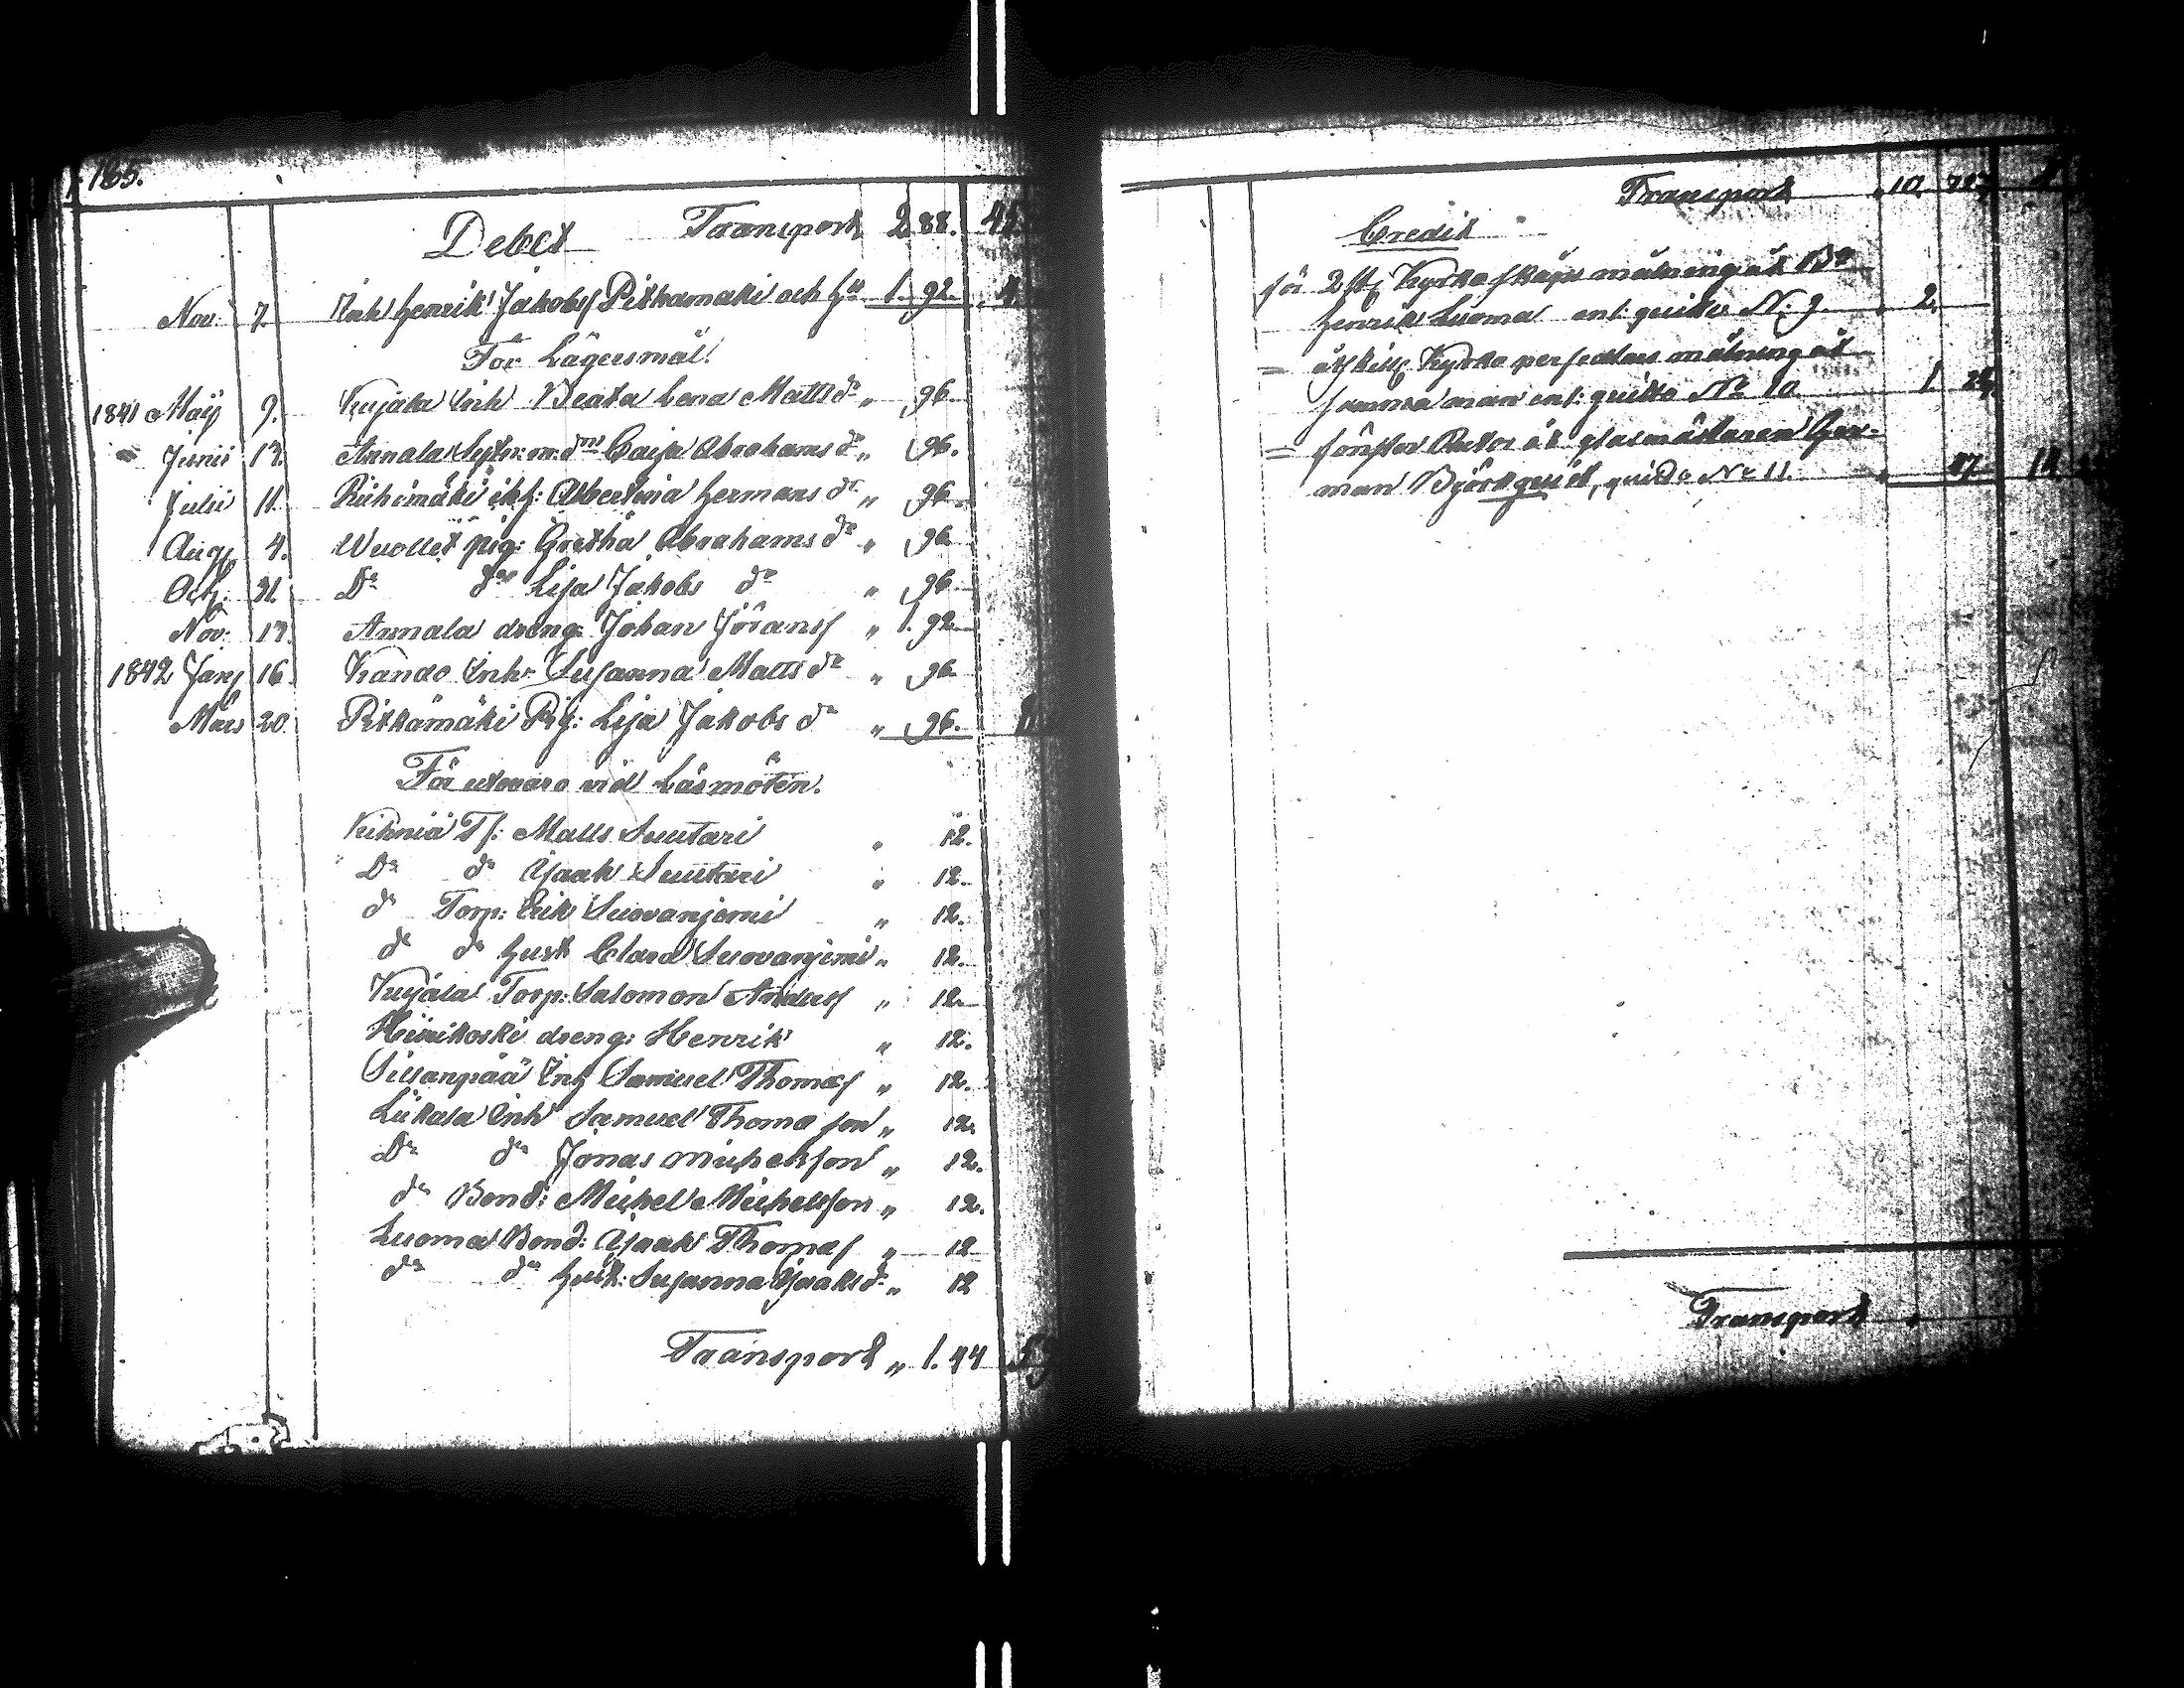 165.
Debet Transport 2. 88.
Nov: 7. Inh Henrik Jakobss Pitkämäki och H:u 1. 92.
För Lägersmål.
1841 Maji 9. Kujala Inh Beata Lena Matts d:r " 96.
Junii 13. Annala Caisa Abrahams d:r " 96.
Julii 11. Riihimäki Albertina Hermans d:r " 96.
Aug 4. Wuollet pig: Gretha Abrahams d:r " 96.
Oct. 31. D:o d:o Lisa Jakobs d:r " 96.
Nov: 17. Annala dreng: Johan Jöranss " 1. 92.
1842 Janj 16. Kando Inh: Susanna Matts d:r " 96.
Mars 20. Pitkämäki Pig: Lisa Jakobs d:r " 96.
För utevaro vid Läsmöten.
Kihniä Matts Suutari " 12.
D:o d:o Isaak Suutari " 12.
d:o Torp: Erik Suovanjemi " 12.
d:o d:o Hust Clara Suovanjemi " 12.
Kujala Torp: Salomon Anderss " 12.
Heinikoski dreng: Henrik " 12.
Siisanpää Inh Samuel Thomass " 12.
Liikala Inh Samuel Thomasson " 12.
D:o d:o Jonas Michelsson " 12.
d:o Bond: Michel Michelsson " 12.
Luoma Bond: Isaak Thomass " 12
d:o d:o Hust: Susanna Isaaks d:r " 12
Transport " 1. 44
Transport 10.
Credit
för 2 st Kyrko skåps målning åt
Henrik Luoma enl: quitto N: 9. 2.
= åtskill Kyrko målning åt
samma man enl: quitto N:o 10. 1.
= fönster Rutor åt glasmästaren Her-
man Björkquist, quitto N:o 11.
Transport